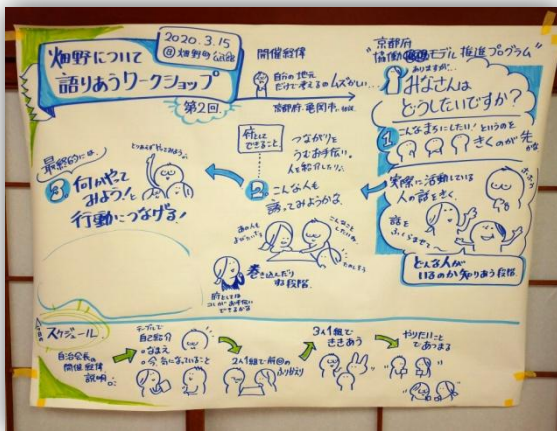 畑野について
語りあうワークショップ
第2回
2020.3.15
@畑野町公民館
開催経緯
自分の地元
だけで考えるのムズかしい…
京都府、亀岡市、
京都府
"協働モデル推進プログラム"
ありますが…
みなさんは
どうしたいですか?
1 こんなまちにしたい!というのを
きくのが先かな
実際に活動している
人の話をきく
話を
ふくらませる
どんな人が
いるのか知りあう段階
府として
できること
つながりを
うむお手伝い。
人を紹介したり。
2 こんな人も
誘ってみようかな
あの人も
こんなこと
したいね
巻き込んだり
ね段階
府としては
お手伝い
できるかな
最終的には、
3 何かやって
みよう!と
行動につなげる!
とりあえずやってみよう
スケジュール
自治会長の
開催経緯
説明
テーブルで
自己紹介
・なまえ
・今、気になっていること
2人1組で前回の
ふりかえり
3人1組で
ききあう
やりたいこと
であつまる